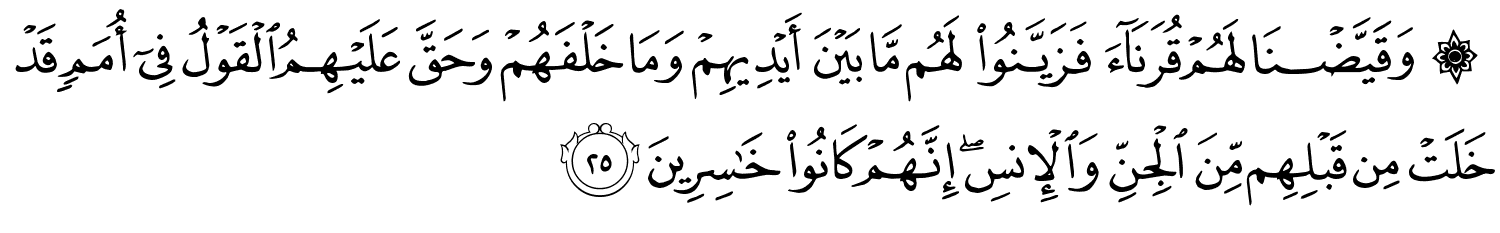 ۞ وَقَيَّضۡنَا لَهُمۡ قُرَنَآءَ فَزَيَّنُواْ لَهُم مَّا بَيۡنَ أَيۡدِيهِمۡ وَمَا خَلۡفَهُمۡ وَحَقَّ عَلَيۡهِمُ ٱلۡقَوۡلُ فِيٓ أُمَمٖ قَدۡ
خَلَتۡ مِن قَبۡلِهِم مِّنَ ٱلۡجِنِّ وَٱلۡإِنسِۖ إِنَّهُمۡ كَانُواْ خَٰسِرِينَ ٢٥